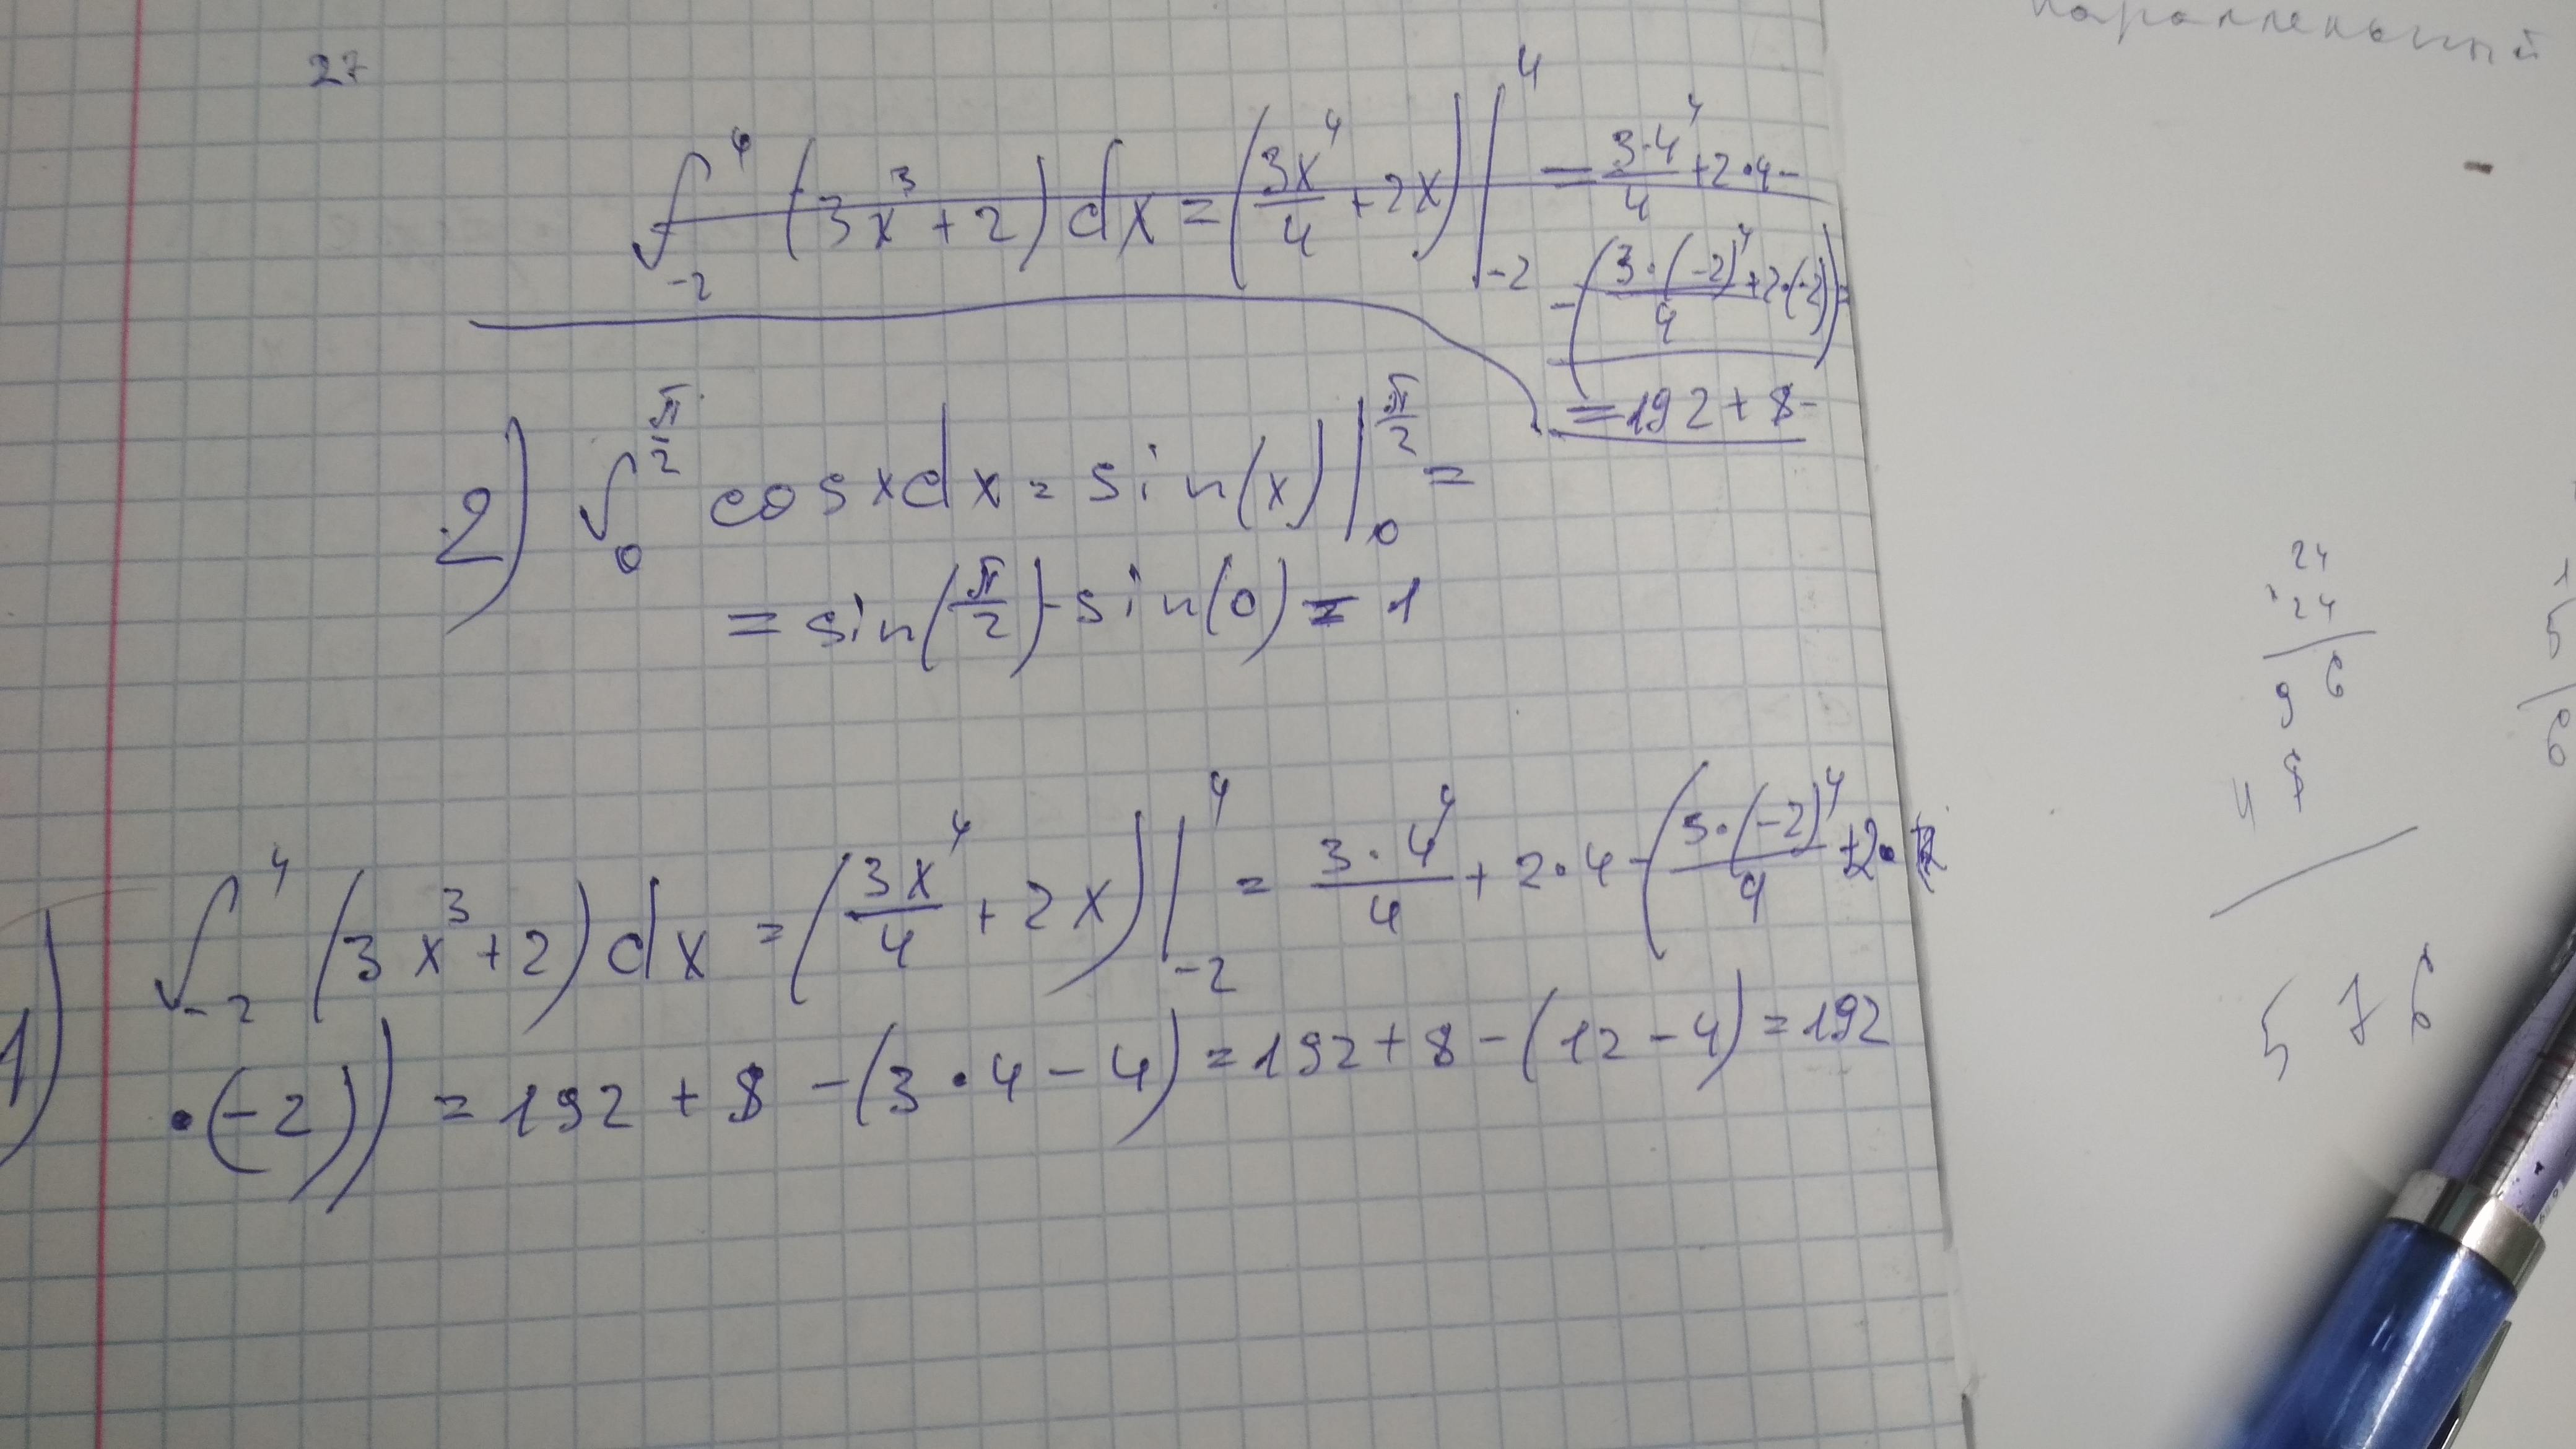 параллельный
27
∫₋₂⁴ (3x³ + 2) dx = (3x⁴/4 + 2x) |₋₂⁴ = 3·4⁴/4 + 2·4 -
- (3·(-2)⁴/4 + 2·(-2)) =
= 192 + 8 -
2) ∫₀^(π/2) cos x dx = sin(x) |₀^(π/2) =
= sin(π/2) - sin(0) = 1
1) ∫₋₂⁴ (3x³ + 2) dx = (3x⁴/4 + 2x) |₋₂⁴ = 3·4⁴/4 + 2·4 - (3·(-2)⁴/4 + 2·
·(-2)) = 192 + 8 - (3·4 - 4) = 192 + 8 - (12 - 4) = 192
24
24
9 6
4 8
5 7 6
1
5
6